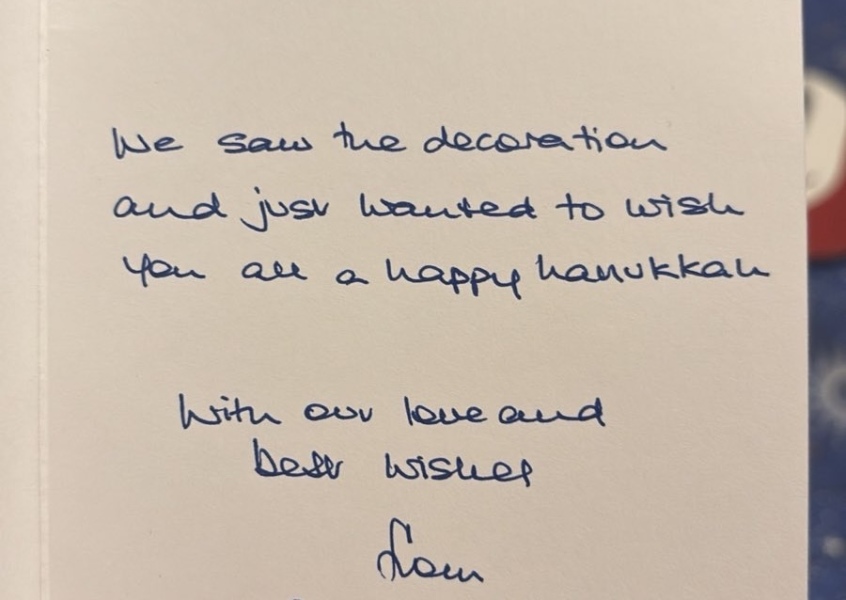 We saw the decoration
and just wanted to wish
you all a happy hanukkah
With our love and
best wishes
from